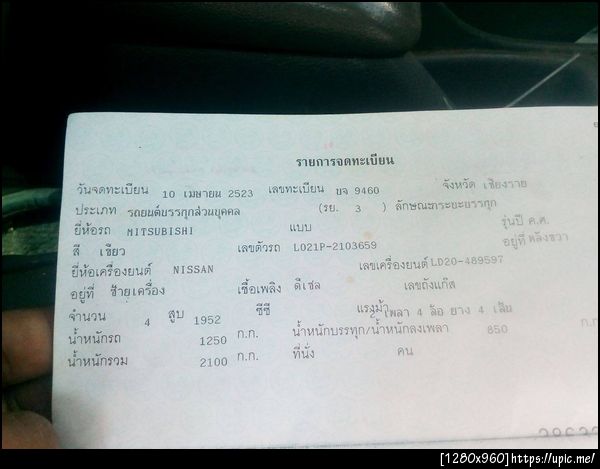 รายการจดทะเบียน
วันจดทะเบียน 10 เมษายน 2523 เลขทะเบียน บจ 9460 จังหวัด เชียงราย
ประเภท รถยนต์บรรทุกส่วนบุคคล (รย. 3 ) ลักษณะกระบะบรรทุก
ยี่ห้อรถ MITSUBISHI แบบ รุ่นปี ค.ศ.
สี เขียว เลขตัวรถ L021P-2103659 อยู่ที่ หลังขวา
ยี่ห้อเครื่องยนต์ NISSAN เลขเครื่องยนต์ LD20-489597
อยู่ที่ ซ้ายเครื่อง เชื้อเพลิง ดีเซล เลขถังแก๊ส
จำนวน 4 สูบ 1952 ซีซี แรงม้า 2 เพลา 4 ล้อ ยาง 4 เส้น
น้ำหนักรถ 1250 ก.ก. น้ำหนักบรรทุก/น้ำหนักลงเพลา 850 ก.ก
น้ำหนักรวม 2100 ก.ก. ที่นั่ง คน
[1280x960]https://upic.me/